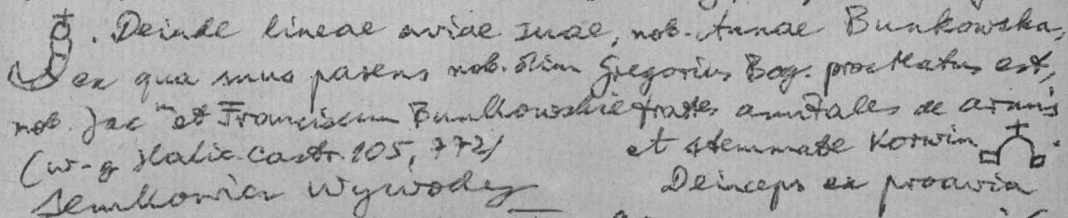 . Deinde lineae aviae suae, nob. Annae Bunkowska,
ex qua suus parens nob. olim Gregorius Bog. procreatus est,
nob. Jac. et Franciscum Bunkowskie fratres amitales de armis
(w-g Halic. Castr. 105, 772) et stemmate Korwin
Semkowicz Wywody Deinceps ex proavia